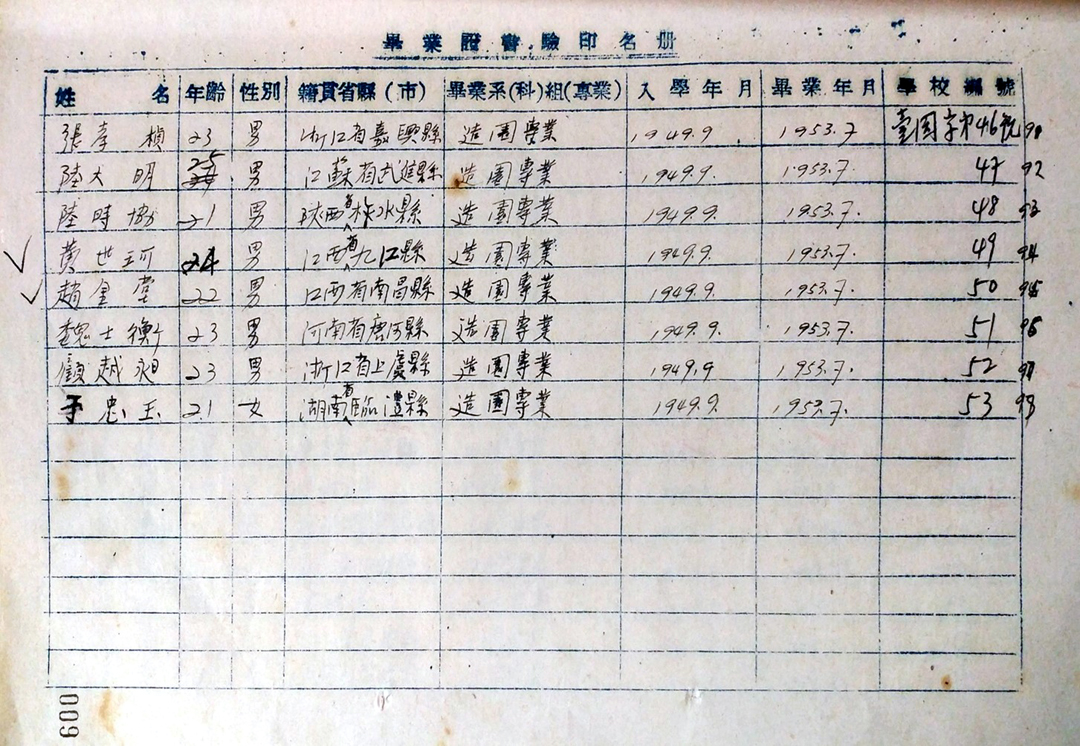 畢業證書驗印名册
姓名 年齡 性別 籍貫省縣(市) 畢業系(科)組(專業) 入學年月 畢業年月 學校編號
張孝楨 23 男 浙江省嘉興縣 造園專業 1949.9 1953.7 園字第46號 91
陸大明 25 男 江蘇省武進縣 造園專業 1949.9. 1953.7. 47 92
陸時協 21 男 陝西省柞水縣 造園專業 1949.9. 1953.7. 48 93
黄世珂 24 男 江西省九江縣 造園專業 1949.9. 1953.7. 49 94
趙金堂 22 男 江西省南昌縣 造園專業 1949.9. 1953.7. 50 95
魏士衡 23 男 河南省唐河縣 造園專業 1949.9. 1953.7. 51 96
顧越昶 23 男 浙江省上虞縣 造園專業 1949.9 1953.7. 52 97
忠玉 21 女 湖南省臨澧縣 造園專業 1949.9. 1953.7. 53 98
009